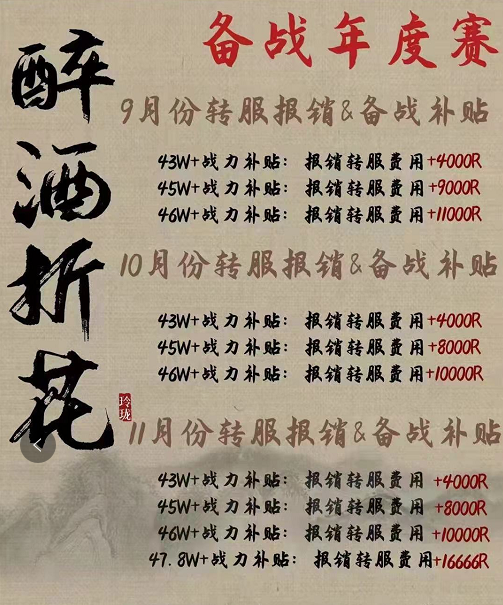 备战年度赛
醉酒折花
玲珑
9月份转服报销&备战补贴
43W+战力补贴：报销转服费用+4000R
45W+战力补贴：报销转服费用+9000R
46W+战力补贴：报销转服费用+11000R
10月份转服报销&备战补贴
43W+战力补贴：报销转服费用+4000R
45W+战力补贴：报销转服费用+8000R
46W+战力补贴：报销转服费用+10000R
11月份转服报销&备战补贴
43W+战力补贴：报销转服费用+4000R
45W+战力补贴：报销转服费用+8000R
46W+战力补贴：报销转服费用+10000R
47.8W+战力补贴：报销转服费用+16666R